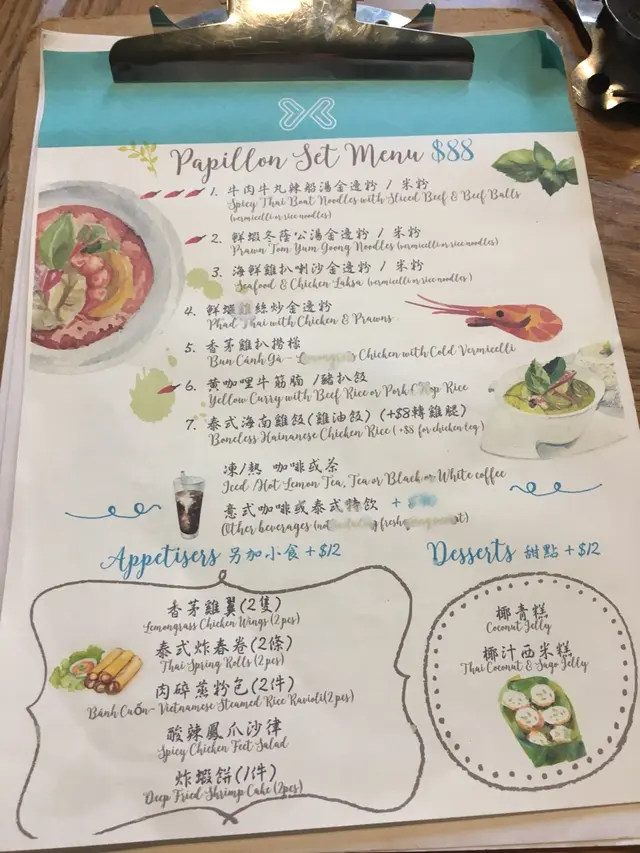 Papillon Set Menu $88
1. 牛肉牛丸辣船湯金邊粉 / 米粉
Spicy Thai Boat Noodles with Sliced Beef & Beef Balls
(vermicelli or rice noodles)
2. 鮮蝦冬蔭公湯金邊粉 / 米粉
Prawn Tom Yum Goong Noodles (vermicelli or rice noodles)
3. 海鮮雞扒喇沙金邊粉 / 米粉
Seafood & Chicken Laksa (vermicelli or rice noodles)
4. 鮮蝦雞絲炒金邊粉
Phad Thai with Chicken & Prawns
5. 香茅雞扒撈檬
Bun Cánh Gà - Chicken with Cold Vermicelli
6. 黄咖哩牛筋腩 /豬扒飯
Yellow Curry with Beef Rice or Pork Rice
7. 泰式海南雞飯(雞油飯) (+$8轉雞腿)
Boneless Hainanese Chicken Rice (+$8 for chicken leg)
凍/熱 咖啡或茶
Iced /Hot Lemon Tea, Tea or Black or White coffee
意式咖啡或泰式特飲 +
Other beverages (not
Appetisers 另加小食 +$12
香茅雞翼(2隻)
Lemongrass Chicken Wings (2pcs)
泰式炸春卷(2條)
Thai Spring Rolls (2pcs)
肉碎蒸粉包(2件)
Bánh Cuốn- Vietnamese Steamed Rice Ravioli(2pcs)
酸辣鳳爪沙律
Spicy Chicken Feet Salad
炸蝦餅(1件)
Deep Fried Shrimp Cake (2pcs)
Desserts 甜點 +$12
椰青糕
Coconut Jelly
椰汁西米糕
Thai Coconut & Sago Jelly